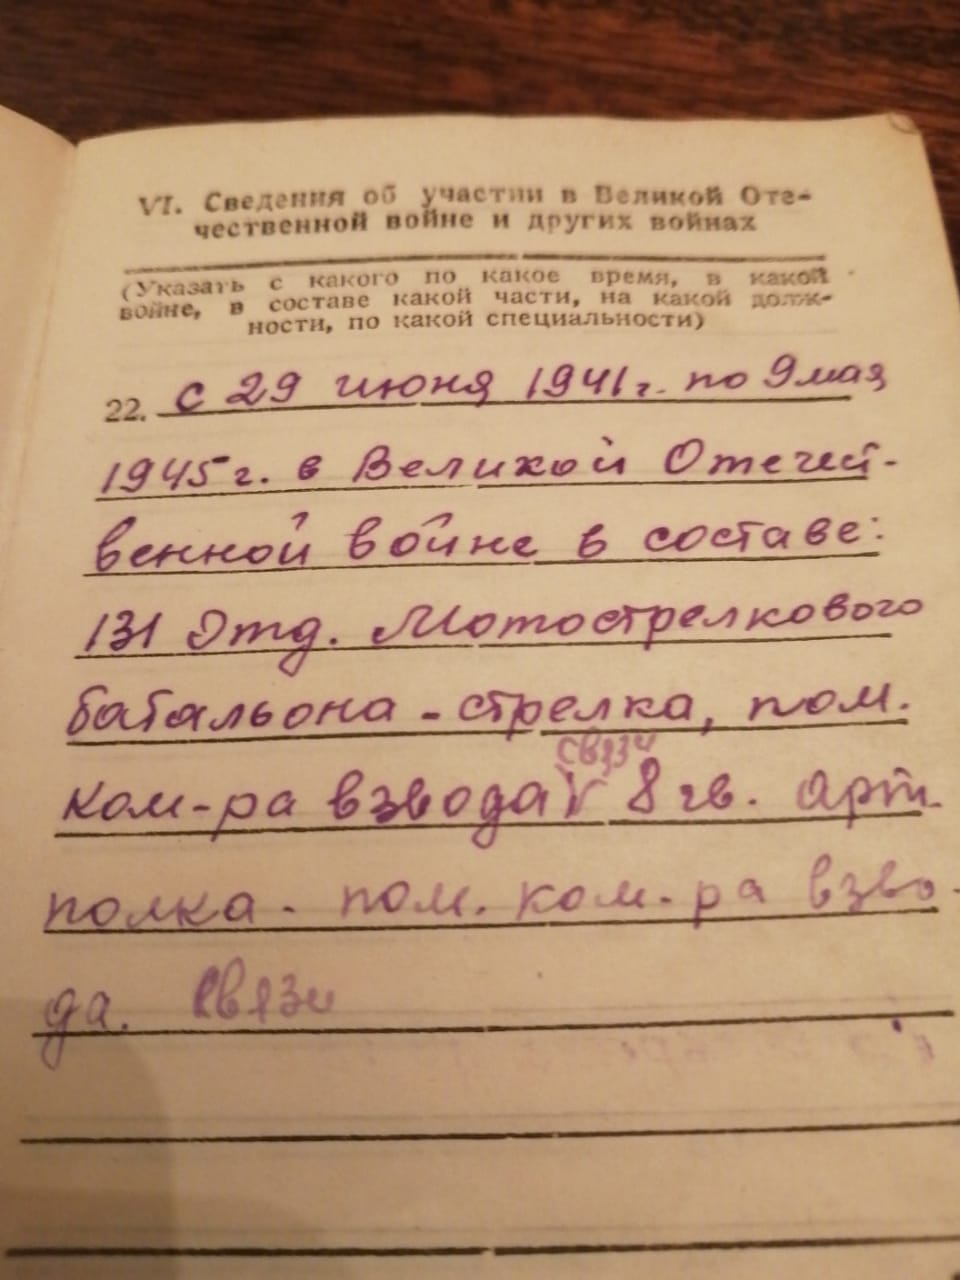 VI. Сведения об участии в Великой Оте-
чественной войне и других войнах
(Указать с какого по какое время, в какой
войне, в составе какой части, на какой долж-
ности, по какой специальности)
22. с 29 июня 1941 г. по 9 мая
1945 г. в Великой Отечест-
венной войне в составе:
131 Отд. Мотострелкового
батальона - стрелка, пом.
связи
ком-ра взвода V 8 гв. арт.
полка - пом. ком-ра взво-
да. связи